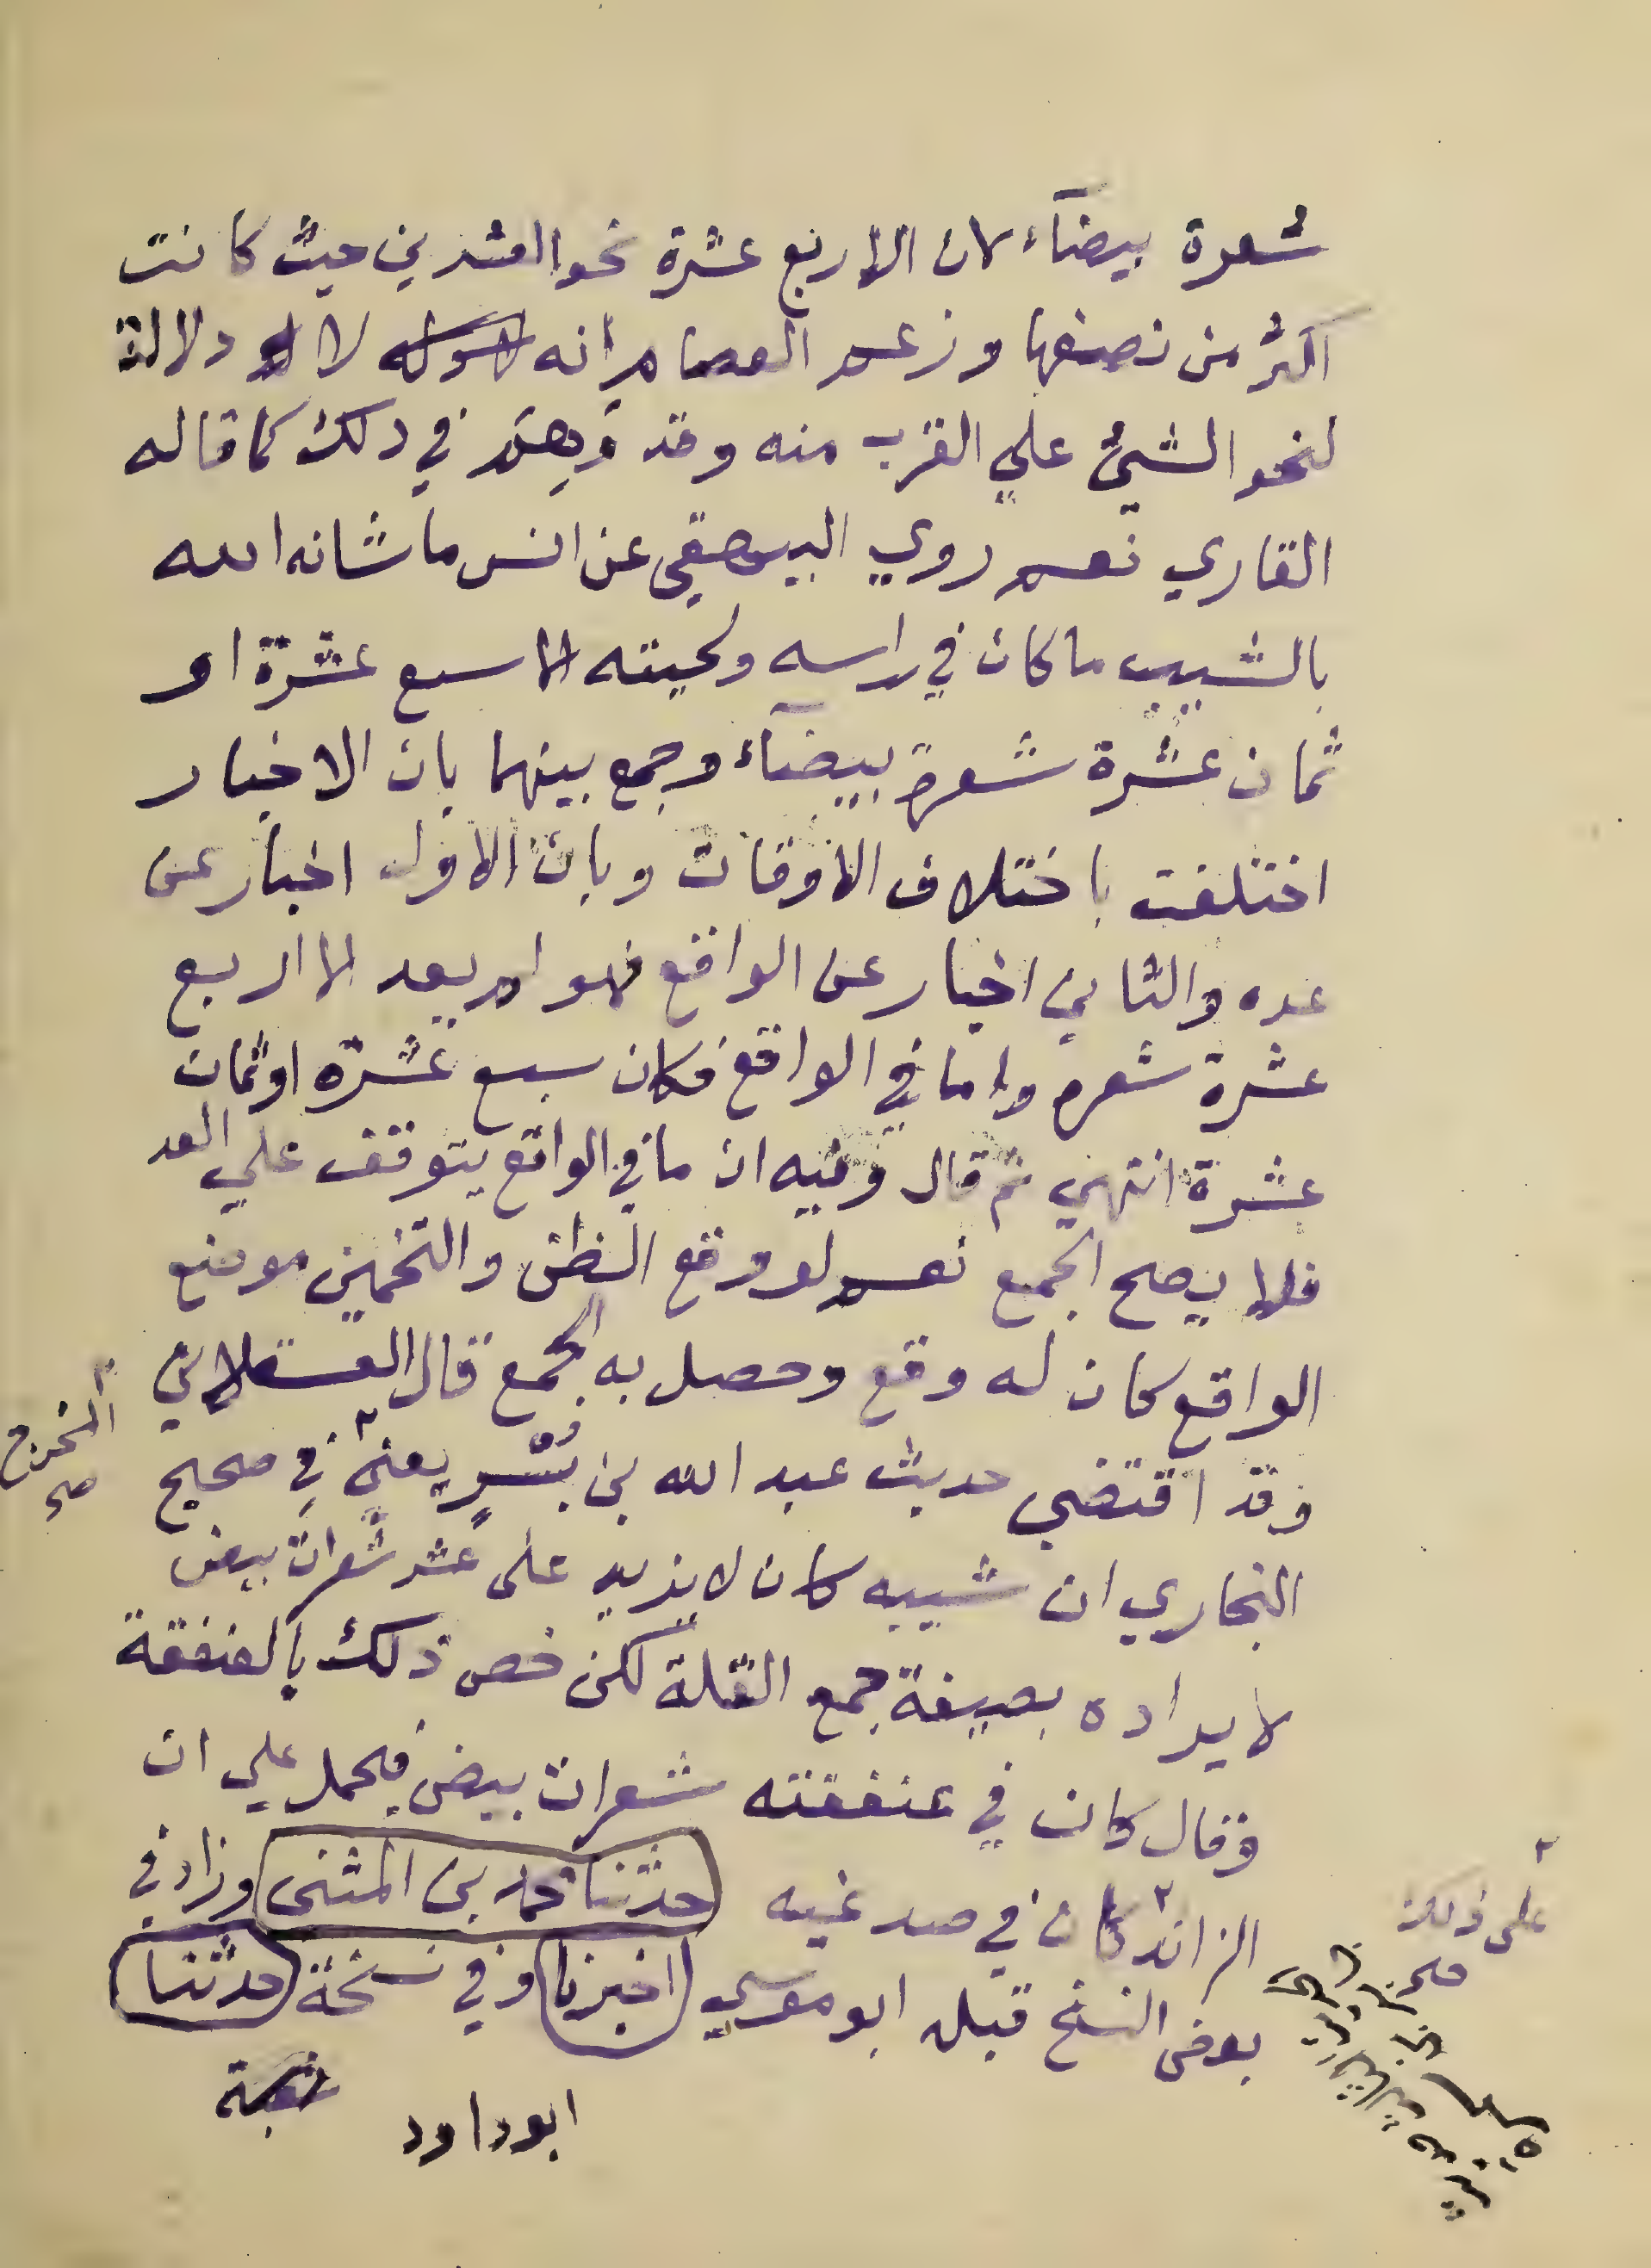 شعرة بيضآء لان الاربع عشرة نحو العشرين حيث كانت
اكثر من نصفها وزعم العصام انه لا دلالة
لنحو الشيئ علي القرب منه وقد وَهِمَ في ذلك كما قاله
القاري نعم روي البيهقي عن انس ما شانه الله
بالشيب ما كان في راسه ولحيته الا سبع عشرة او
ثمان عشرة شعرة بيضآء وجمع بينهما بان الاخبار
اختلفت باختلاف الاوقات وبان الاول اخبار عن
عده والثاني اخبار عن الواقع فهو لم يعد الا اربع
عشرة شعره واما في الواقع فكان سبع عشرة او ثمان
عشرة انتهي ثم قال وفيه ان ما في الواقع يتوقف علي العد
فلا يصح الجمع نعم لو وقع الظن والتخمين موضع
الواقع كان له وقع وحصل به الجمع قال العسقلاني
وقد اقتضي حديث عبد الله بن بُسْرٍ يعني ٢ في صحيح
٢ المخرج
صح
البخاري ان شيبه كان لا يزيد على عشر شعرات بيض
لايراده بصيغة جمع القلة لكن خص ذلك بالعنفقة
وقال كان في عنفقته شعرات بيض فيحمل علي ان
الزائد ٢ كان في صدغيه حدثنا محمد بن المثنى وزاد في
٢ على ذلك
صح
بعض النسخ قبل ابو موسي اخبرنا وفي نسخة حدثنا
ابو داود